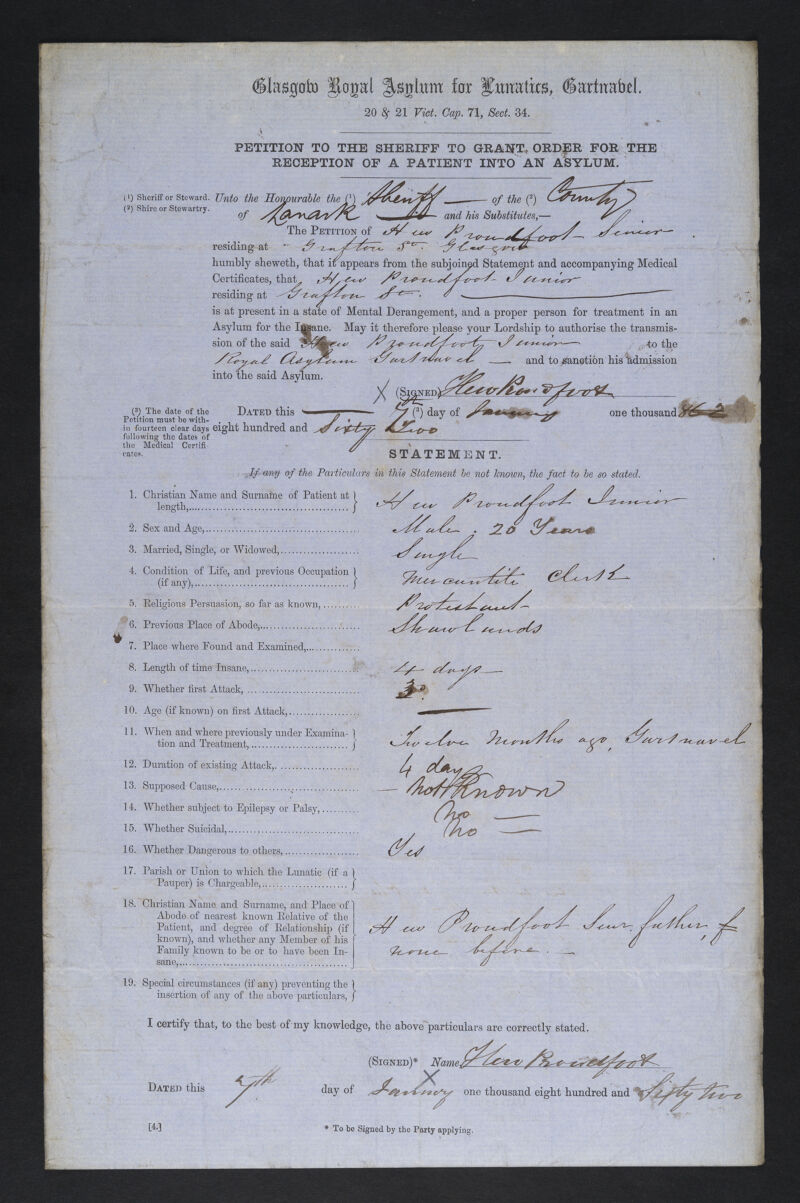 Glasgow Royal Asylum for Lunatics, Gartnavel.
20 & 21 Vict. Cap. 71, Sect. 34.
PETITION TO THE SHERIFF TO GRANT ORDER FOR THE
RECEPTION OF A PATIENT INTO AN ASYLUM.
(1) Sheriff or Steward.
(2) Shire or Stewartry.
Unto the Honourable the (1) Sheriff — of the (2) County
of Lanark — and his Substitutes,—
The PETITION of Hew Proudfoot Senior
residing at Grafton St. Glasgow
humbly sheweth, that it appears from the subjoined Statement and accompanying Medical
Certificates, that Hew Proudfoot Junior
residing at Grafton St.
is at present in a state of Mental Derangement, and a proper person for treatment in an
Asylum for the Insane. May it therefore please your Lordship to authorise the transmis-
sion of the said Hew Proudfoot Junior to the
Royal Asylum Gartnavel — and to sanction his admission
into the said Asylum.
X (SIGNED) Hew Proudfoot
(3) The date of the
Petition must be with-
in fourteen clear days
following the dates of
the Medical Certifi-
cates.
DATED this — 7th (3) day of January one thousand 1862
eight hundred and Sixty Two
STATEMENT.
If any of the Particulars in this Statement be not known, the fact to be so stated.
1. Christian Name and Surname of Patient at
length, Hew Proudfoot Junior
2. Sex and Age, Male. 20 Years
3. Married, Single, or Widowed, Single
4. Condition of Life, and previous Occupation
(if any), Mercantile Clerk
5. Religious Persuasion, so far as known, Protestant
6. Previous Place of Abode, Shawlands
7. Place where Found and Examined,
8. Length of time Insane, 4 days —
9. Whether first Attack,
10. Age (if known) on first Attack, —
11. When and where previously under Examina-
tion and Treatment, Twelve Months ago, Gartnavel
12. Duration of existing Attack, 4 days
13. Supposed Cause, — Not Known
14. Whether subject to Epilepsy or Palsy, No —
15. Whether Suicidal, No —
16. Whether Dangerous to others, Yes
17. Parish or Union to which the Lunatic (if a
Pauper) is Chargeable,
18. Christian Name and Surname, and Place of
Abode of nearest known Relative of the
Patient, and degree of Relationship (if
known), and whether any Member of his
Family known to be or to have been In-
sane,
Hew Proudfoot Senr. father,
none before. —
19. Special circumstances (if any) preventing the
insertion of any of the above particulars,
I certify that, to the best of my knowledge, the above particulars are correctly stated.
(SIGNED)* Name Hew Proudfoot
X
DATED this 7th day of January one thousand eight hundred and Sixty two
[4.]
* To be Signed by the Party applying.